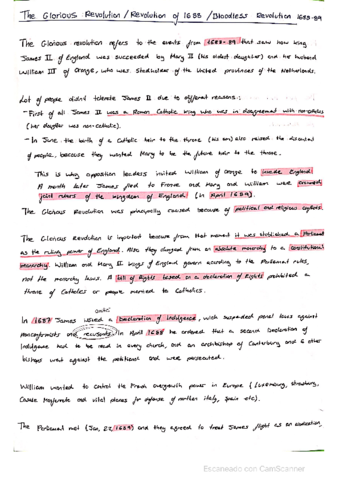 The Glorious Revolution / Revolution of 1688 / Bloodless Revolution 1688-89
The Glorious revolution refers to the events from 1688-89 that saw how king
James II of England was succeeded by Mary II (his eldest daughter) and he husband
William III of Orange, who was Stadholder of the United provinces of the Netherlands.
Lot of people didn't tolerate James II due to different reasons:
- First of all James II was a Roman Catholic king who was in disagreement with non-catholics
(her daughter was non-catholic).
- In June the birth of a Catholic heir to the throne (his son) also raised the discontent
of people, because they wanted Mary to be the future heir to the throne.
This is why opposition leaders invited William of Orange to invade England
A month later James fled to France and Mary and William were crowned
joint rulers of the kingdom of England (in April 1689).
The Glorious Revolution was principally caused because of political and religious conflicts.
The Glorious Revolution is important because from that moment it was stablished a Parliament
as the ruling power of England. Also they changed from an absolute monarchy to a constitutional
monarchy. William and Mary II kings of England govern according to the Parliament rules,
not the monarchy laws. A bill of Rights based on a declaration of Rights prohibited a
throne of Catholics or people married to Catholics.
In 1687 James issued a Declaration of Indulgence, wich suspended penal laws against
nonconformists and recusants. In April 1688 he ordered that a second Declaration of
Indulgence had to be read in every church, and an archbishop of Canterbury and 6 other
bishops went against the petitions and were persecuted.
William wanted to control the French overgrowth power in Europe (Luxemburg, Strasburg,
Casale Monferrato and vital places for defense of northen italy, Spain etc).
The Parliament met (Jan, 22, 1689) and they agreed to treat James flight as an abdication.
Escaneado con CamScanner